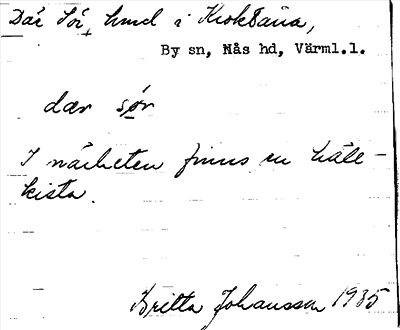 Där Sör, hmd i Kroktäna,
By sn, Nås hd, Värml.l.
dær sør
I närheten finns en häll-
kista.
Britta Johansson 1935